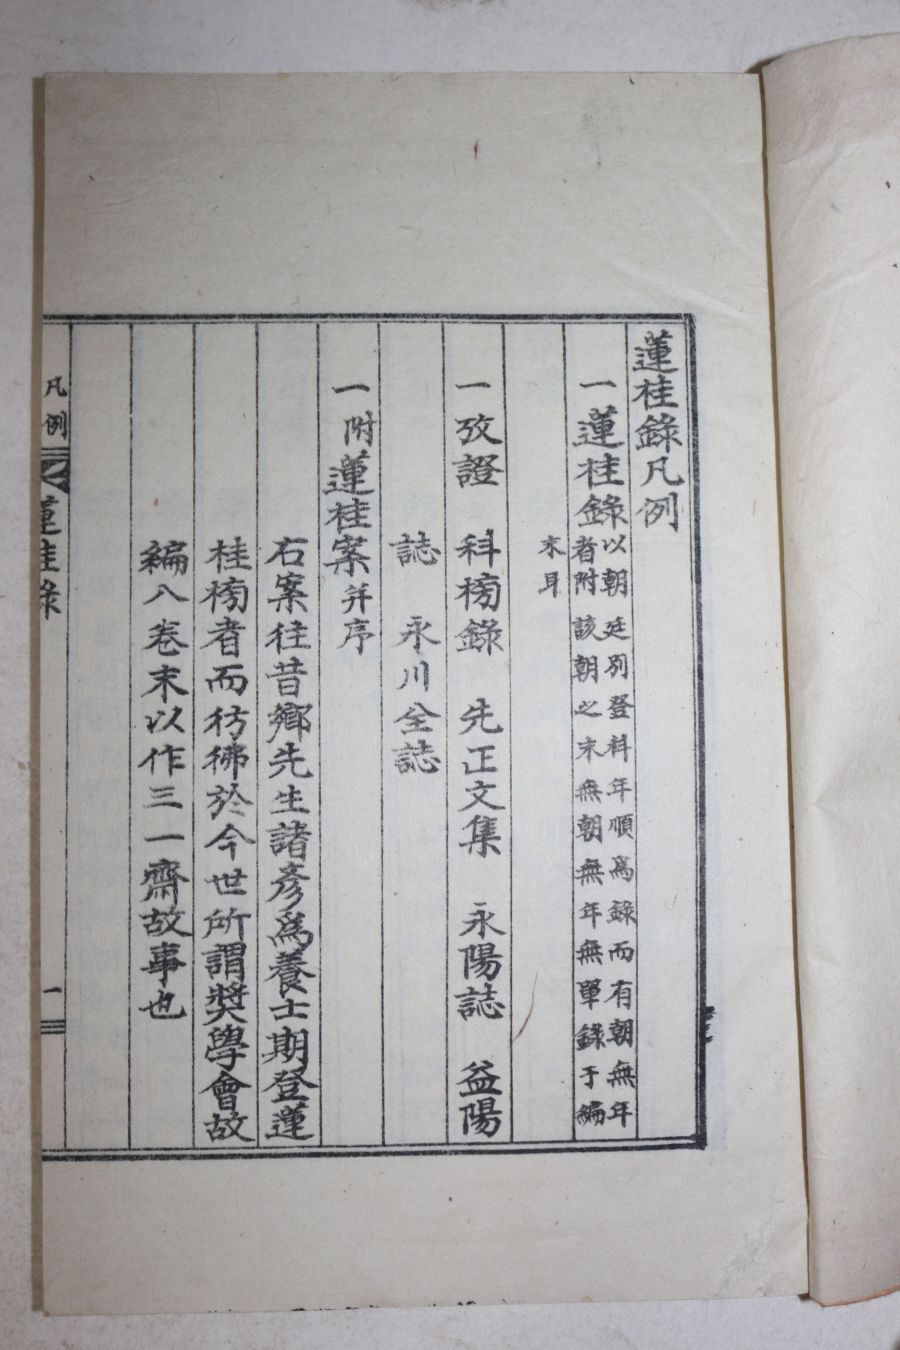 蓮桂錄凡例
一蓮桂錄
以朝廷別登科年順爲錄而有朝無年
者附該朝之末無朝無年無單錄于編
末耳
一攷證 科榜錄 先正文集 永陽誌 益陽
誌 永川全誌
一附蓮桂案并序
右案往昔鄉先生諸彥爲養士期登蓮
桂榜者而彷彿於今世所謂奬學會故
編八卷末以作三一齋故事也
凡例 蓮桂錄 一